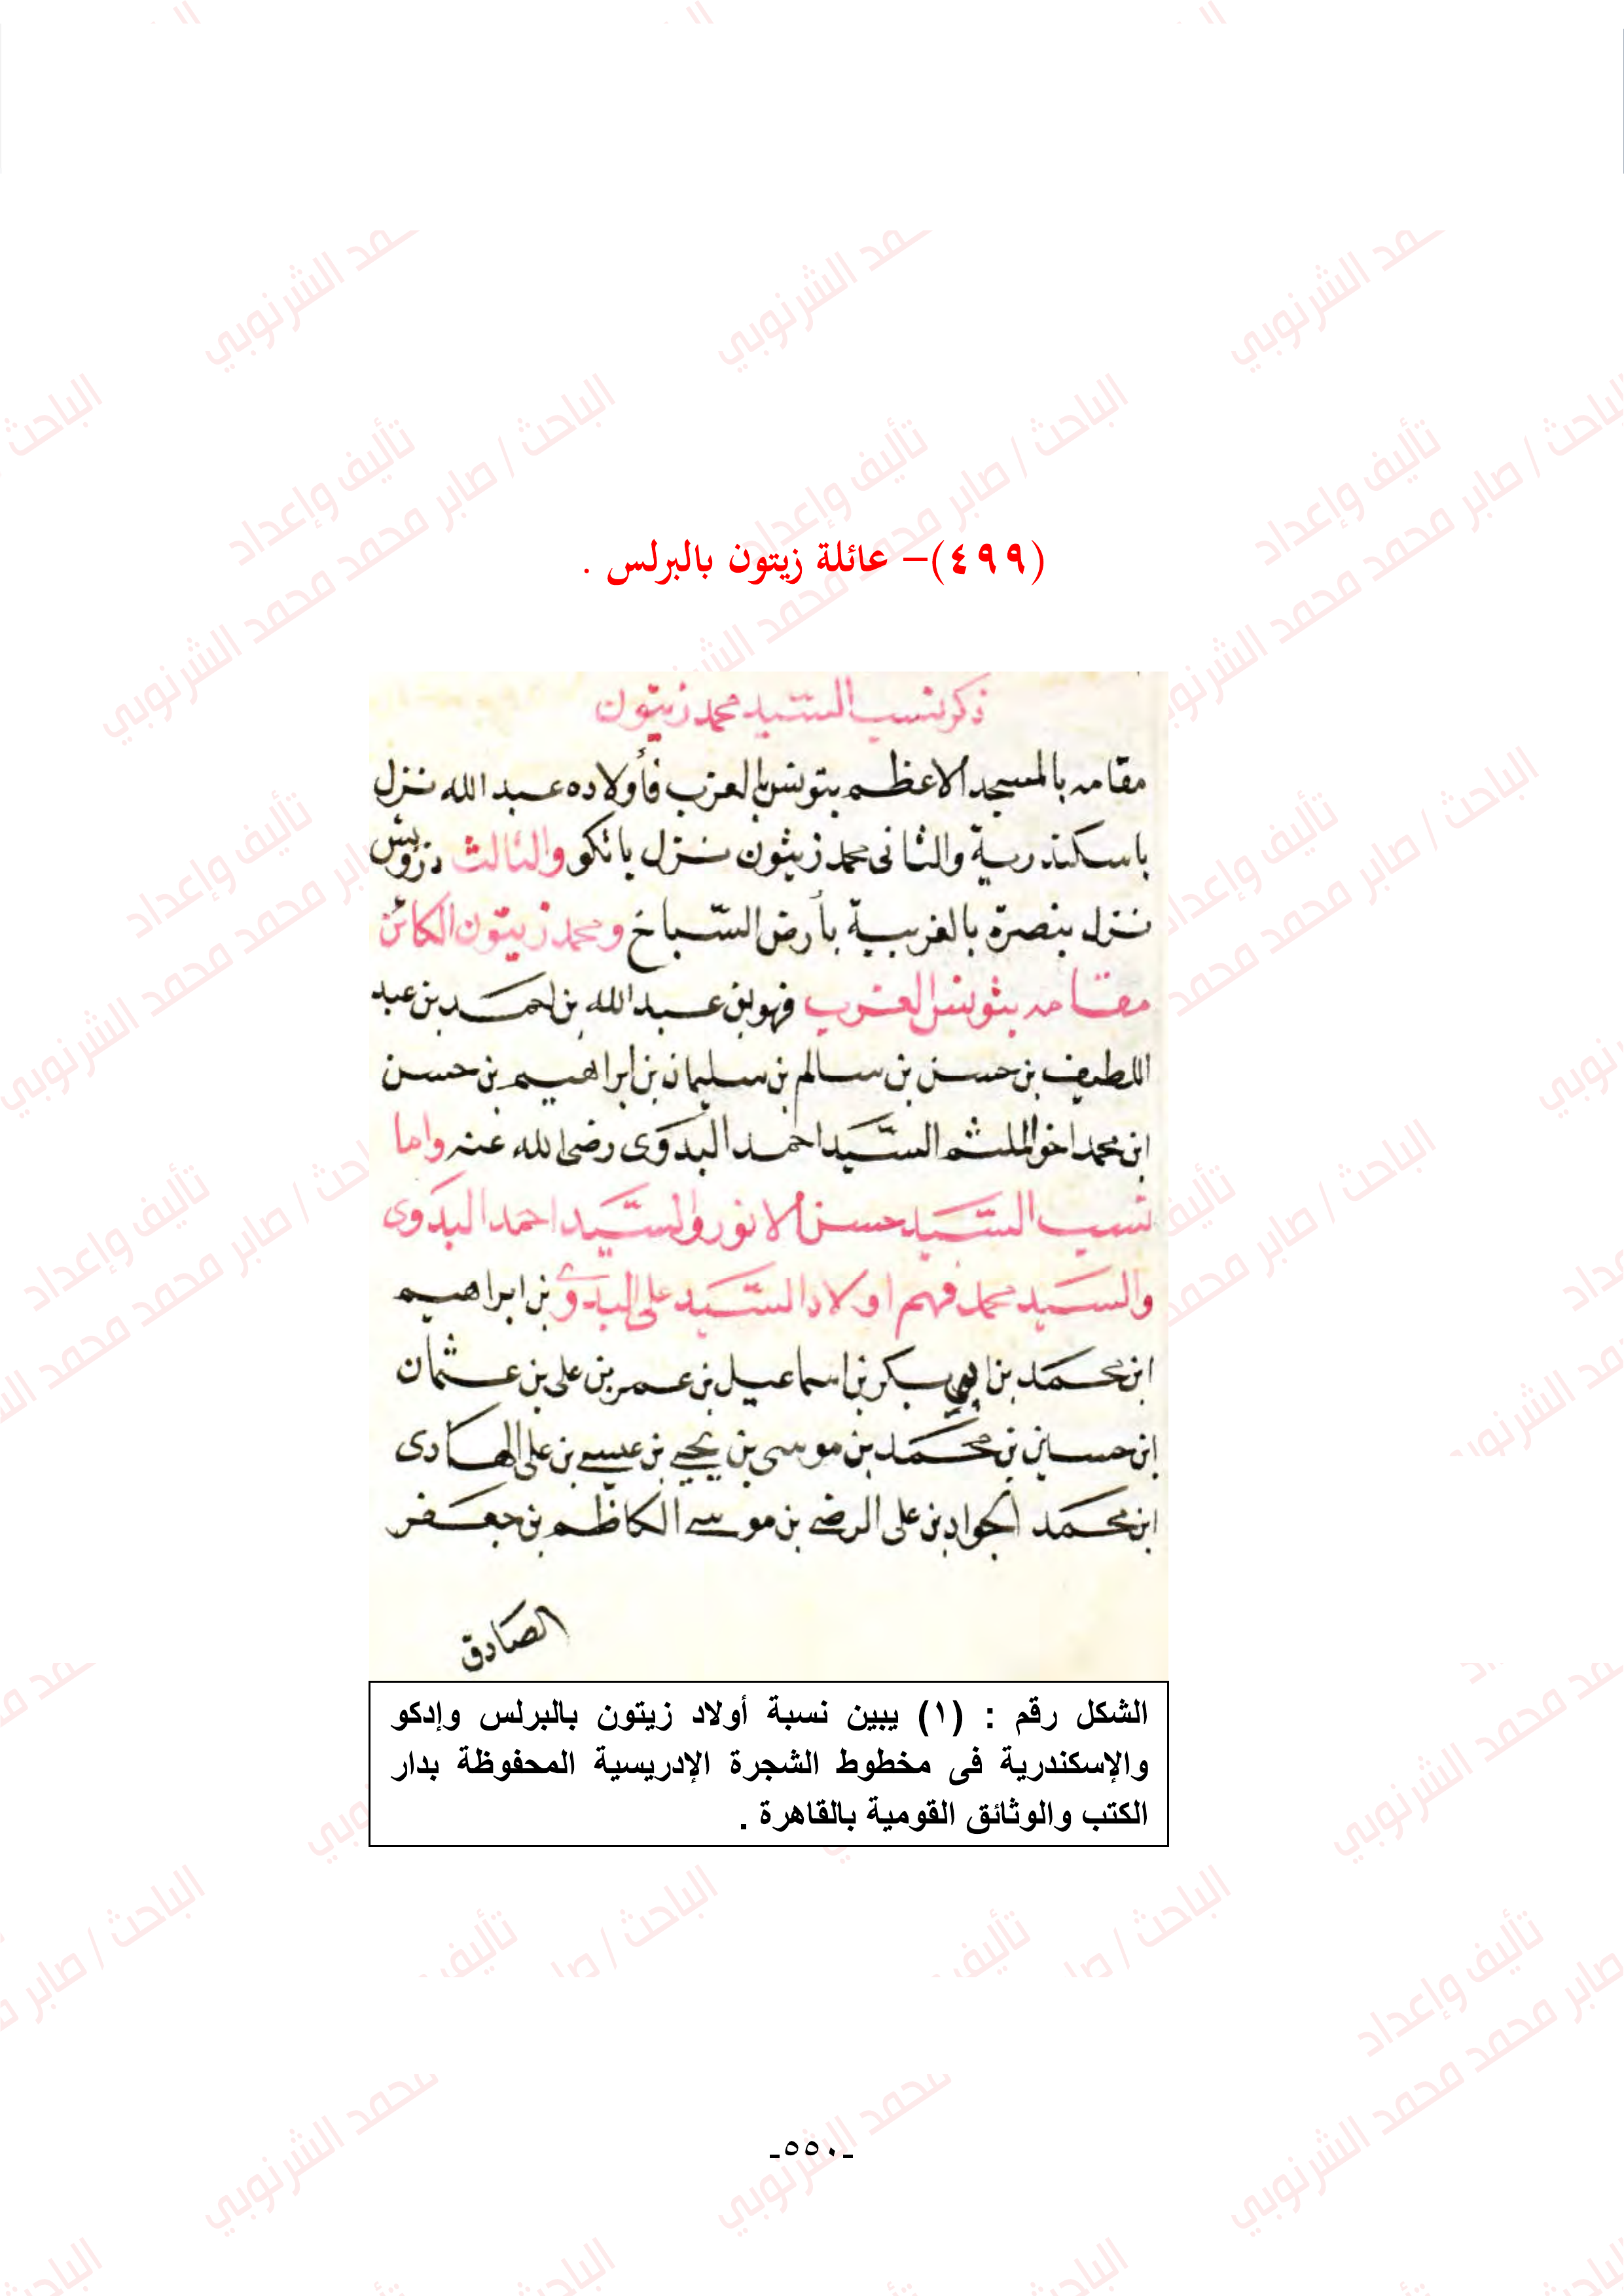 (٤٩٩)– عائلة زيتون بالبرلس .
ذكر نسب السيد محمد زيتون
مقامه بالمسجد الاعظم بتونس بالغرب فأولاده عبد الله نزل
باسكندرية والثانى محمد زيثون نزل باتكو والثالث درويش
نزل بنصرة بالغربية بأرض السّباخ ومحمد زيتون الكائن
مقامه بثونس الغرب فهو بن عبد الله بن احمد بن عبد
اللطيف بن حسن بن سالم بن سليمان بن ابراهيم بن حسن
ابن محمد اخو الملثم السّيد احمد البدوى رضى الله عنه واما
نسب السّيد حسن الانور والسّيد احمد البدوى
والسيد محمد فهم اولاد السّيد على البدوي بن ابراهيم
ابن محمد بن ابي بكر بن اسماعيل بن عمر بن على بن عثمان
ابن حسين بن محمد بن موسى بن يحيي بن عيسي بن على الهادى
ابن محمد الجواد بن على الرضي بن موسي الكاظم بن جعفر
الصادق
الشكل رقم : (١) يبين نسبة أولاد زيتون بالبرلس وإدكو
والإسكندرية فى مخطوط الشجرة الإدريسية المحفوظة بدار
الكتب والوثائق القومية بالقاهرة .
ـ٥٥٠ـ
تأليف وإعداد
الباحث / صابر محمد محمد الشرنوبي